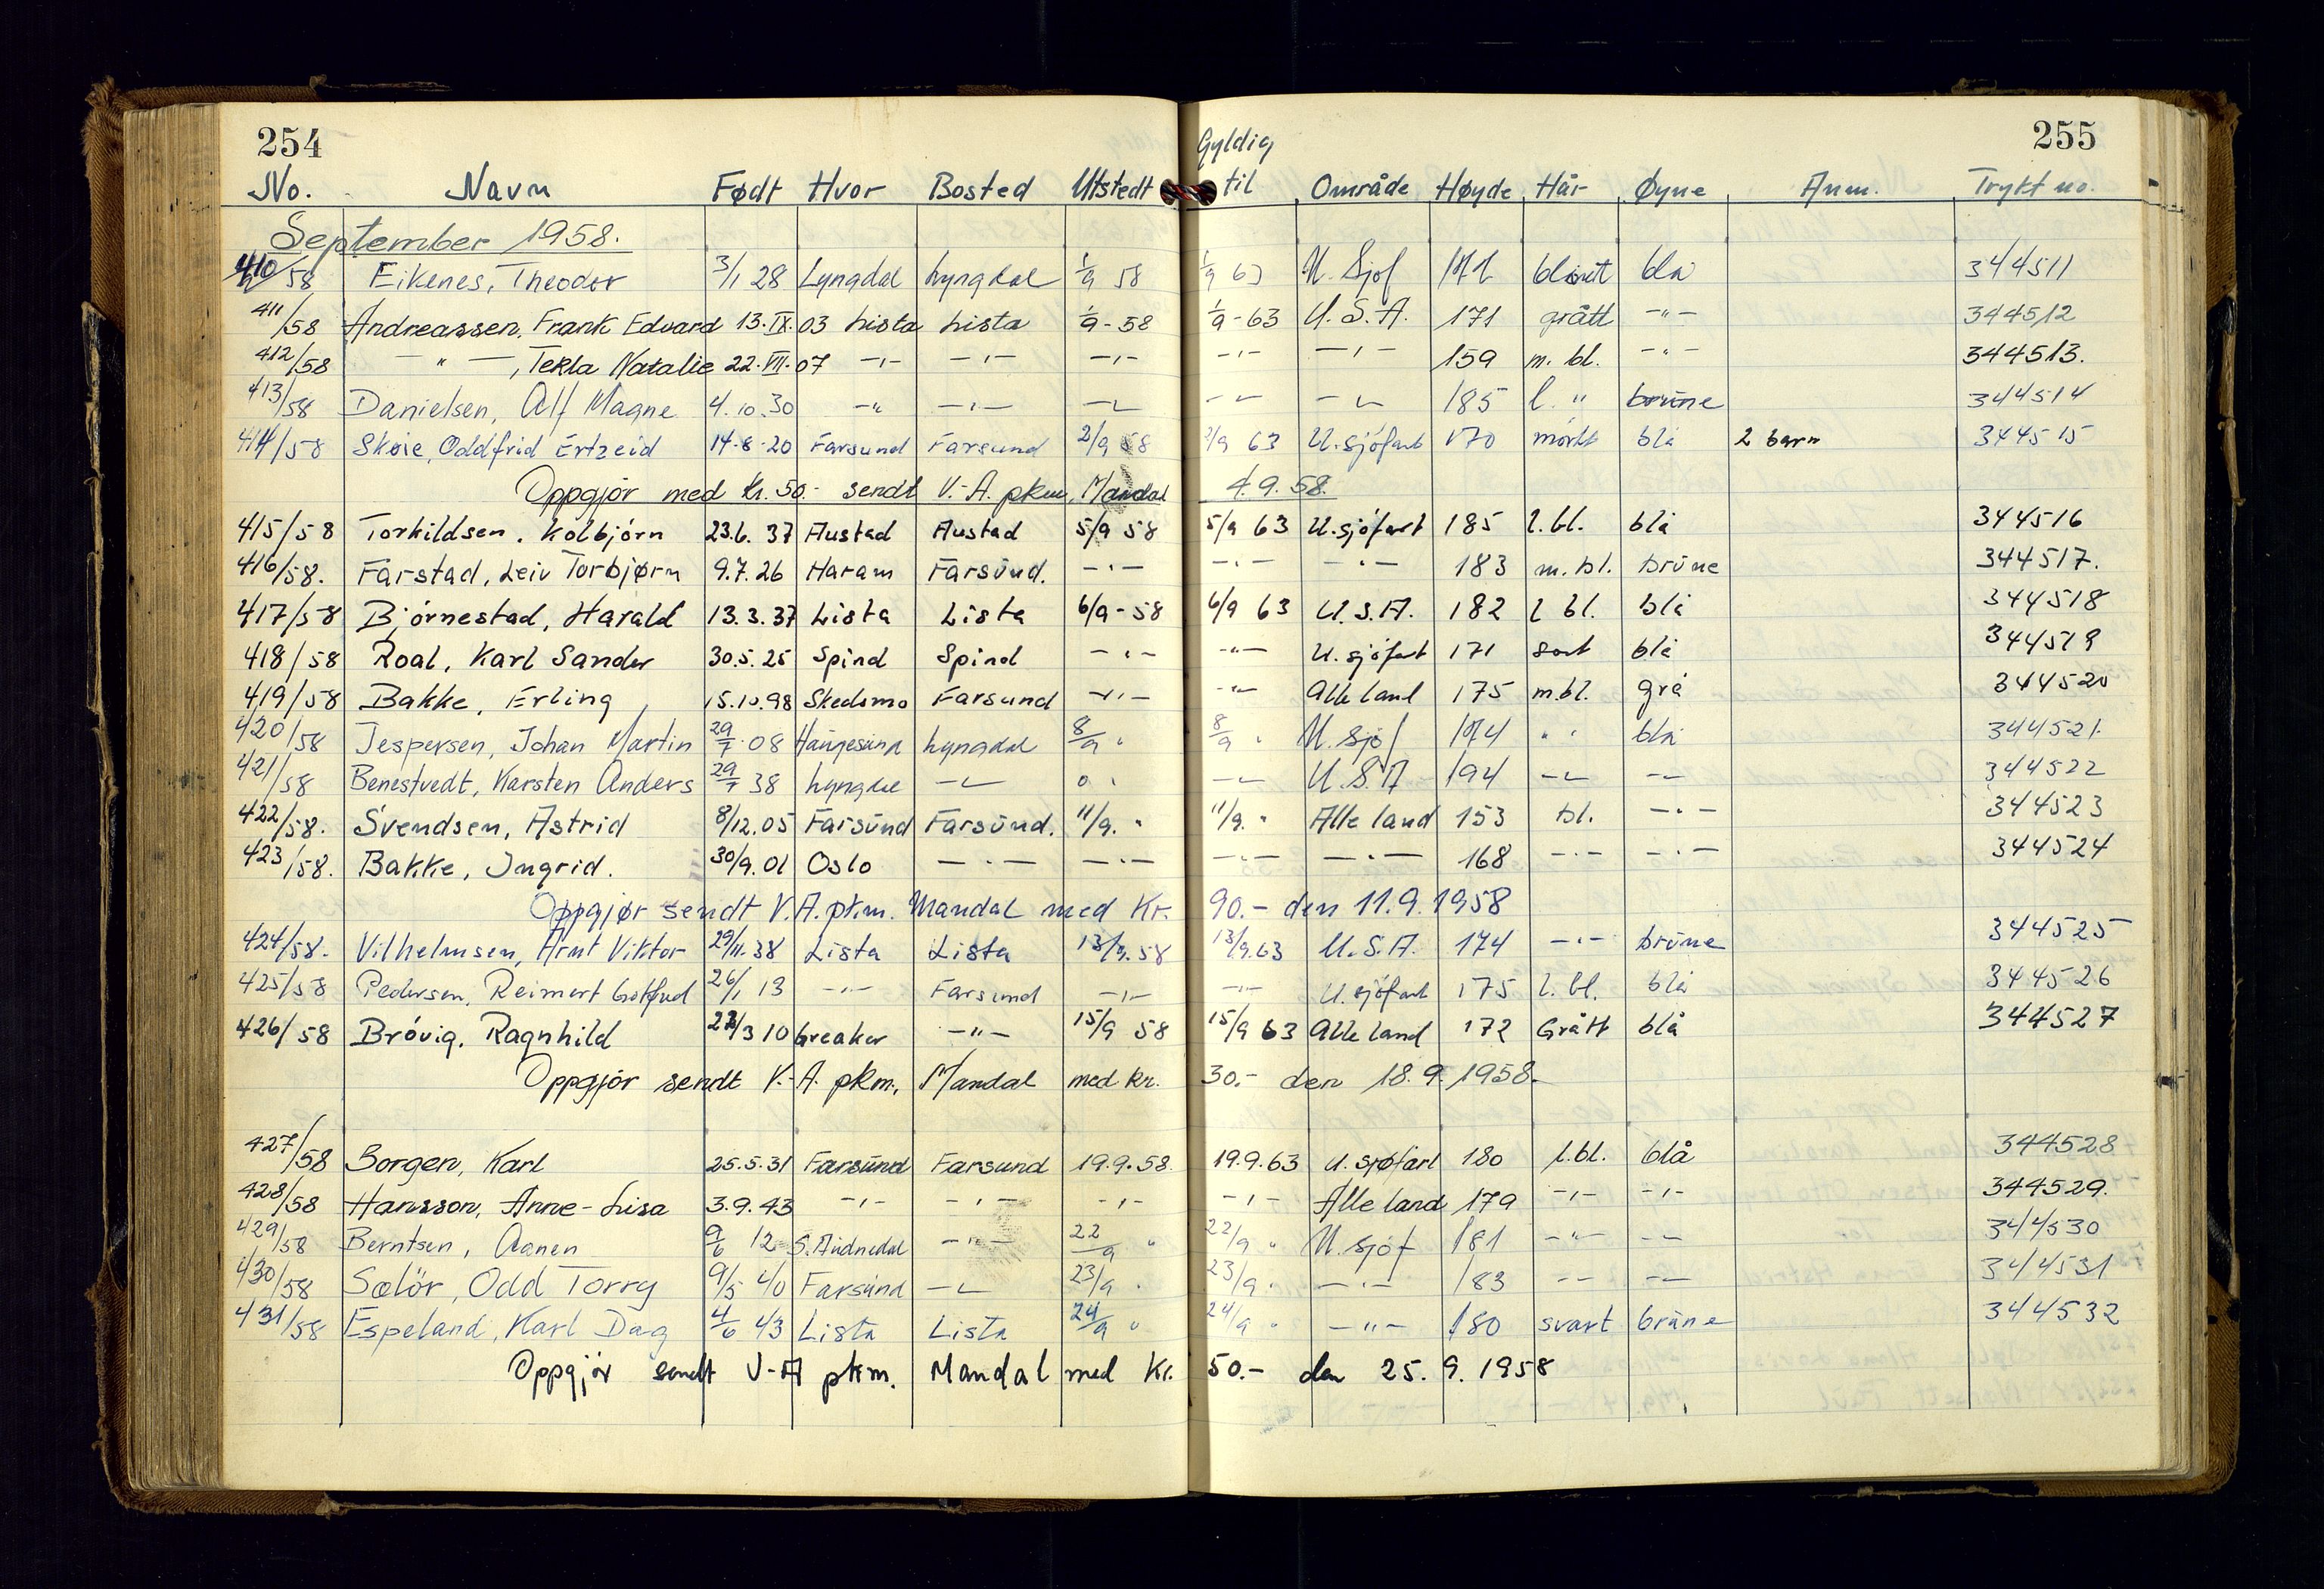 254
Gyldig
255
No. Navn Født Hvor Bosted Utstedt til Område Høyde Hår Øyne Anm. Trykt no.
September 1958.
410/58 Eikenes, Theodor 3/1 28 Lyngdal Lyngdal 1/9 58 1/9 63 U. Sjøf 171 blondt blå 344511
411/58 Andreassen, Frank Edvard 13.IX.03 Lista Lista 1/9-58 1/9-63 U.S.A. 171 grått -"- 344512
412/58 — " —, Tekla Natalie 22.VII.07 -"- -"- -"- -"- -"- 159 m. bl. -"- 344513.
413/58 Danielsen, Alf Magne 4.10.30 -"- -"- -"- -"- -"- 185 l. " brune 344514
414/58 Skeie, Oddfrid Ertzeid 14-8-20 Farsund Farsund 2/9 58 2/9 63 U.sjöfart 170 mörkt blå 2 barn 344515
Oppgjör med kr. 50.- sendt V.-A. pkm, Mandal 4.9.58.
415/58 Torkildsen, Kolbjörn 23.6.37 Austad Austad 5/9 58 5/9 63 U.sjöfart 185 l.bl. blå 344516
416/58. Farstad, Leiv Torbjørn 9.7.26 Haram Farsund. -"- -"- -"- 183 m.bl. brune 344517.
417/58 Björnestad, Harald 13.3.37 Lista Lista 6/9-58 6/9 63 U.S.A. 182 l bl. blå 344518
418/58 Roal, Karl Sander 30.5.25 Spind Spind -"- -"- U.sjöfart 171 sort blå 344519
419/58 Bakke, Erling 15.10.98 Skedsmo Farsund -"- -"- Alle land 175 m.bl. grå 344520
420/58 Jespersen, Johan Martin 29/7.08 Haugesund Lyngdal 8/9 " 8/9 " U. Sjöf 174 " " blå 344521.
421/58 Benestvedt, Karsten Anders 29/7 38 Lyngdal -"- " " -"- U.S.A 194 -"- -"- 344522
422/58. Svendsen, Astrid 8/12.05 Farsund Farsund. 11/9. " 11/9. " Alle land 153 bl. -"- 344523
423/58. Bakke, Ingrid. 30/9.01 Oslo -"- -"- -"- -"- 168 -"- -"- 344524
Oppgjør sendt V.A. pkm. Mandal med Kr. 90.- den 11.9.1958
424/58. Vilhelmsen, Arnt Viktor 29/11.38 Lista Lista 13/9.58 13/9.63 U.S.A. 174 -"- brune 344525
425/58 Pedersen, Reimert Gotfred 26/1 13 -"- Farsund -"- -"- U.sjöfart 175 l.bl. blå 344526
426/58 Brövig, Ragnhild 23/3 10 Greaker -"- 15/9 58 15/9 63 Alle land 172 Grått blå 344527
Oppgjör sendt V.-A. pkm., Mandal med kr. 30.- den 18.9.1958.
427/58 Borgen, Karl 25.5.31 Farsund Farsund 19.9.58. 19.9.63 U.sjøfart 180 l.bl. blå 344528
428/58 Hansson, Anne-Lisa 3.9.43 -"- -"- -"- -"- Alle land 179 -"- -"- 344529.
429/58 Berntsen, Aanen 9/6 12 S.Audnedal -"- 22/9 " 22/9 " U. Sjöf 181 -"- -"- 344530
430/58 Sælör, Odd Torry 9/5 40 Farsund -"- 23/9 " 23/9 " -"- 183 -"- -"- 344531
431/58 Espeland, Karl Dag 4/6 43 Lista Lista 24/9 " 24/9 " -"- 180 svart brune 344532
Oppgjör sendt V-A pkm. Mandal med Kr. 50.- den 25.9.1958